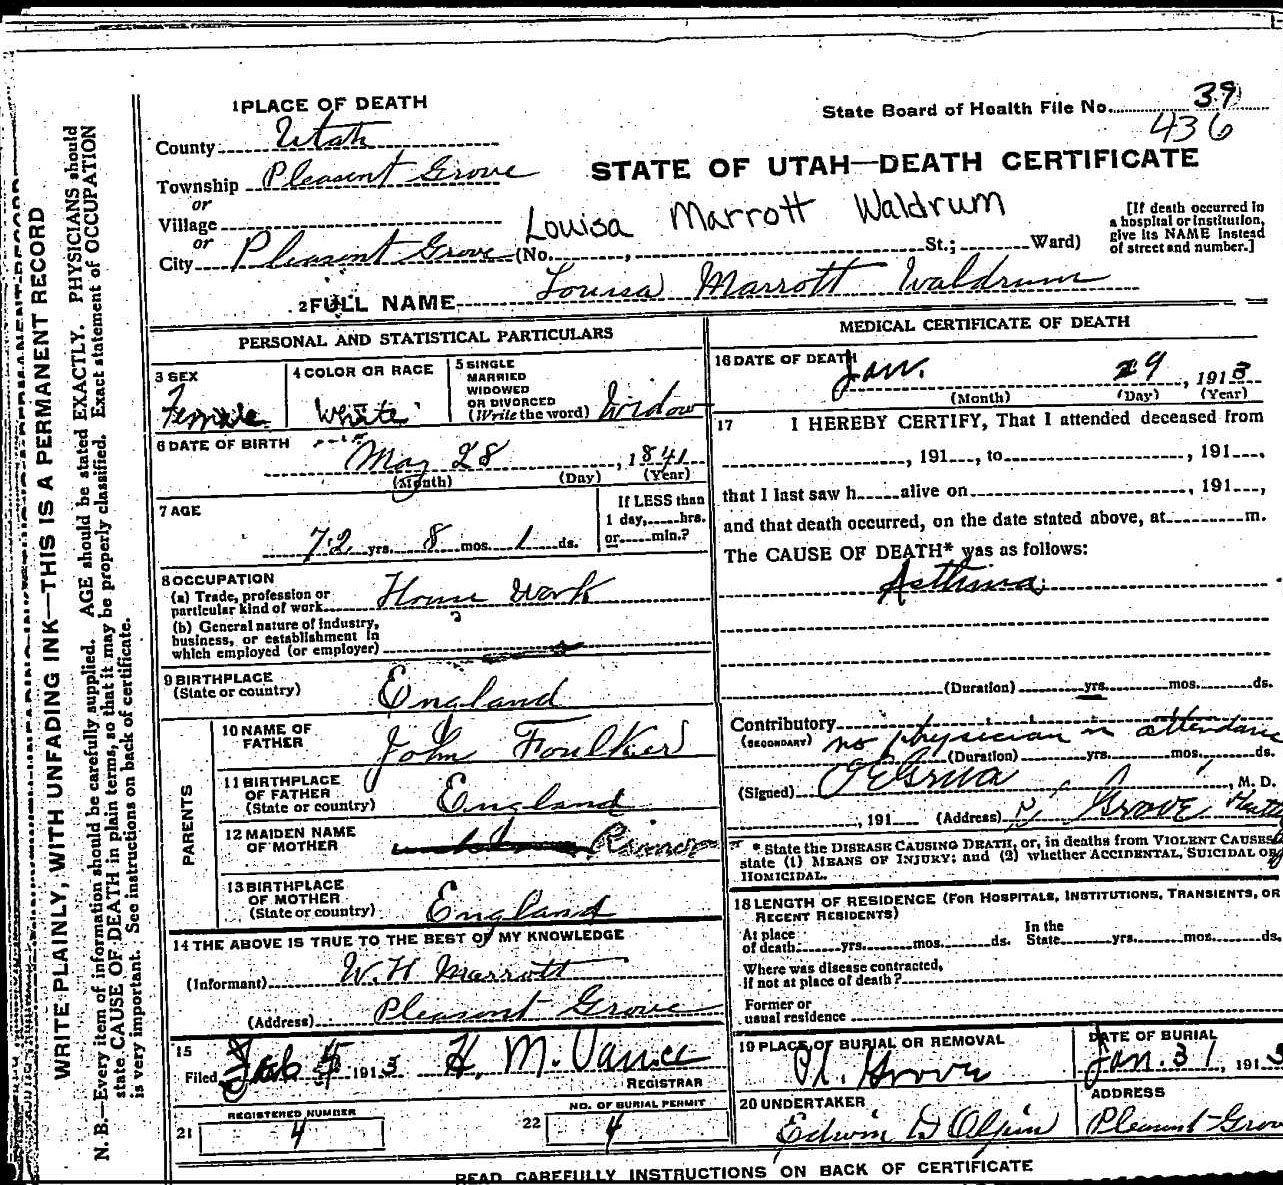 1 PLACE OF DEATH
State Board of Health File No. 39
436
County Utah
Township Pleasant Grove
STATE OF UTAH—DEATH CERTIFICATE
or
Village
Louisa Marrott Waldrum
or
City Pleasant Grove (No. , St.; Ward)
[If death occurred in
a hospital or institution,
give its NAME instead
of street and number.]
2 FULL NAME Louisa Marrott Waldrum
PERSONAL AND STATISTICAL PARTICULARS
3 SEX
Female
4 COLOR OR RACE
White
5 SINGLE
MARRIED
WIDOWED
OR DIVORCED
(Write the word) Widow
6 DATE OF BIRTH
May 28, 1841
(Month) (Day) (Year)
7 AGE
72 yrs. 8 mos. 1 ds.
If LESS than
1 day, hrs.
or min.?
8 OCCUPATION
(a) Trade, profession or
particular kind of work House Work
(b) General nature of industry,
business, or establishment in
which employed (or employer)
9 BIRTHPLACE
(State or country) England
PARENTS
10 NAME OF
FATHER John Foulker
11 BIRTHPLACE
OF FATHER
(State or country) England
12 MAIDEN NAME
OF MOTHER
13 BIRTHPLACE
OF MOTHER
(State or country) England
14 THE ABOVE IS TRUE TO THE BEST OF MY KNOWLEDGE
(Informant) W. H. Marrott
(Address) Pleasant Grove
15
Filed Feb 1913 H. M. Vance
REGISTRAR
21 REGISTERED NUMBER
4
22 NO. OF BURIAL PERMIT
4
MEDICAL CERTIFICATE OF DEATH
16 DATE OF DEATH
Jan. 29, 1913
(Month) (Day) (Year)
17 I HEREBY CERTIFY, That I attended deceased from
, 191 , to , 191 ,
that I last saw h alive on , 191 ,
and that death occurred, on the date stated above, at m.
The CAUSE OF DEATH* was as follows:
Asthma
(Duration) yrs. mos. ds.
Contributory
(SECONDARY) no physician in attendance
(Duration) yrs. mos. ds.
(Signed) , M. D.
, 191 (Address) Grove
* State the DISEASE CAUSING DEATH, or, in deaths from VIOLENT CAUSES
state (1) MEANS OF INJURY; and (2) whether ACCIDENTAL, SUICIDAL OR
HOMICIDAL.
18 LENGTH OF RESIDENCE (FOR HOSPITALS, INSTITUTIONS, TRANSIENTS, OR
RECENT RESIDENTS)
At place
of death yrs. mos. ds.
In the
State yrs. mos. ds.
Where was disease contracted,
If not at place of death?
Former or
usual residence
19 PLACE OF BURIAL OR REMOVAL
Pl. Grove
DATE OF BURIAL
Jan. 31, 1913
20 UNDERTAKER
Edwin D Olpin
ADDRESS
Pleasant Grove
READ CAREFULLY INSTRUCTIONS ON BACK OF CERTIFICATE
WRITE PLAINLY, WITH UNFADING INK—THIS IS A PERMANENT RECORD
N. B.—Every item of information should be carefully supplied. AGE should be stated EXACTLY. PHYSICIANS should
state CAUSE OF DEATH in plain terms, so that it may be properly classified. Exact statement of OCCUPATION
is very important. See instructions on back of certificate.